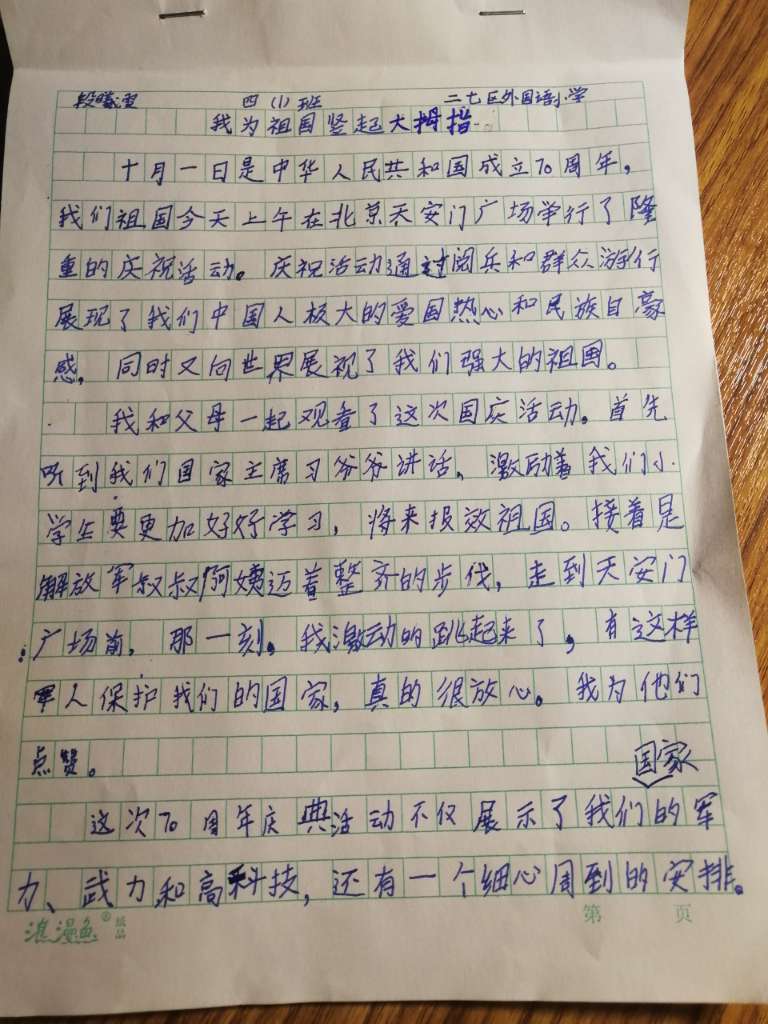 段曦 四（1）班 二七区外国语小学
我为祖国竖起大拇指
十月一日是中华人民共和国成立70周年，
我们祖国今天上午在北京天安门广场举行了隆
重的庆祝活动。庆祝活动通过阅兵和群众游行
展现了我们中国人极大的爱国热心和民族自豪
感，同时又向世界展视了我们强大的祖国。
我和父母一起观看了这次国庆活动。首先
听到我们国家主席习爷爷讲话，激励着我们小
学生要更加好好学习，将来报效祖国。接着是
解放军叔叔阿姨迈着整齐的步伐，走到天安门
广场前，那一刻，我激动的跳起来了，有这样
军人保护我们的国家，真的很放心。我为他们
点赞。
国家
这次70周年庆典活动不仅展示了我们的军
力、武力和高科技，还有一个细心周到的安排。
浪漫鱼®纸品 第 页